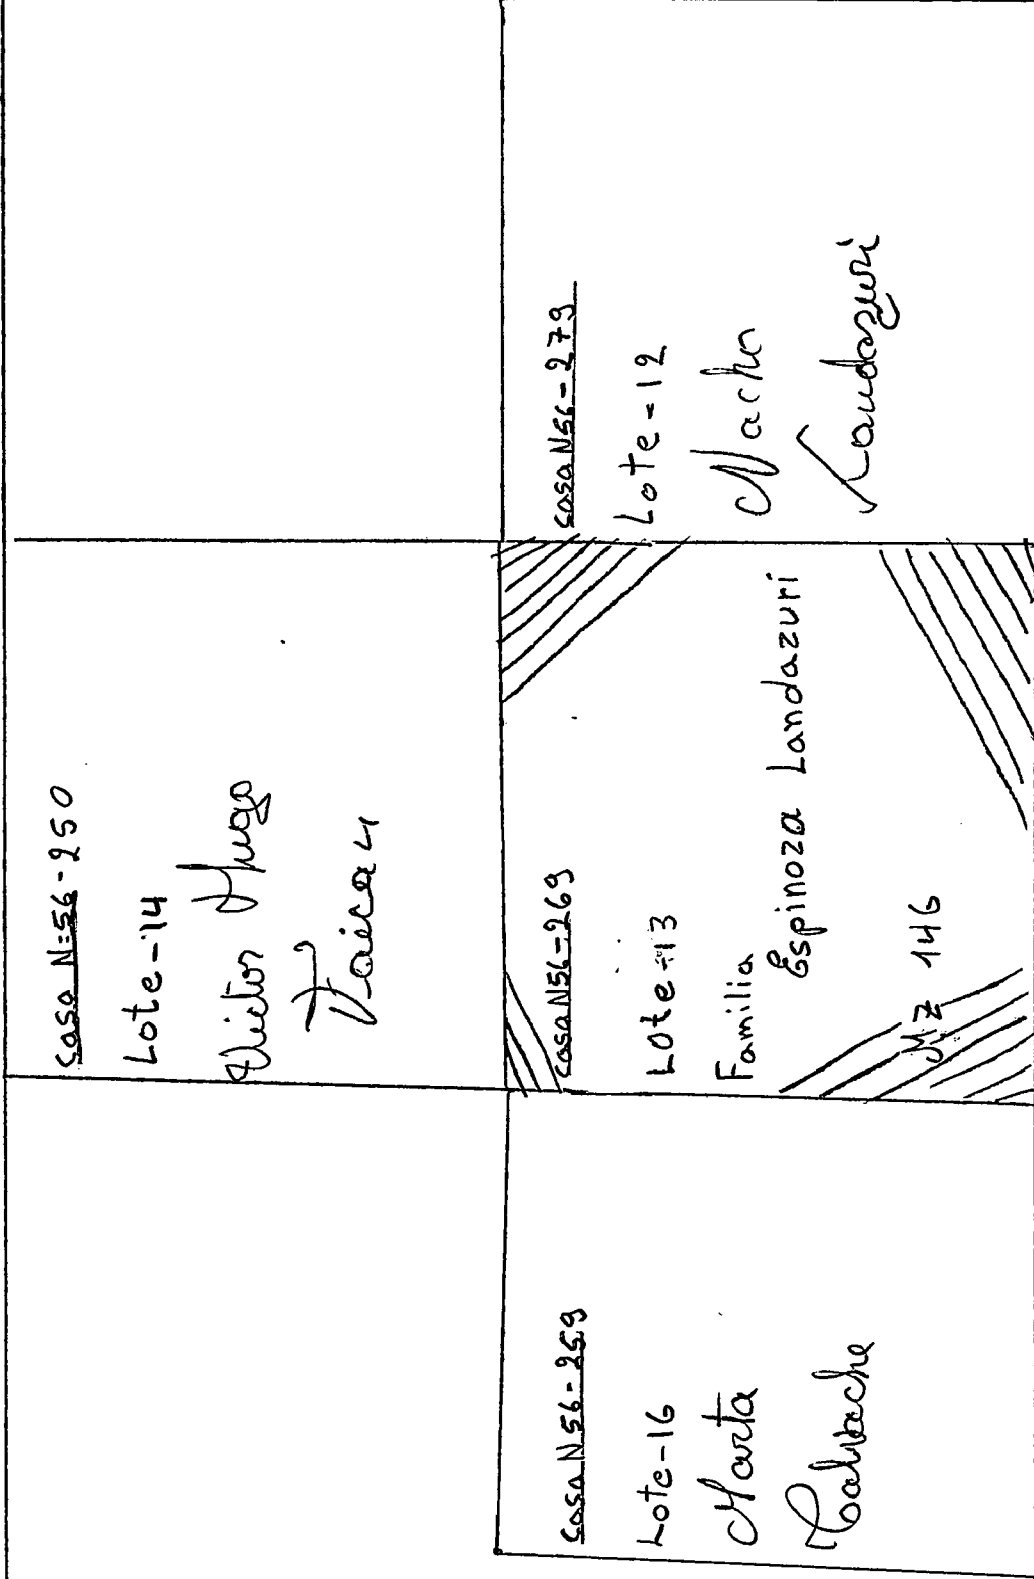 Casa N=56-250
Lote-14
Victor Hugo
Casa N56-259
Lote-16
Marta
Casa N56-269
Lote-13
Familia
Espinoza Landazuri
MZ 146
Casa N56-279
Lote-12
Nacho
Landazuri